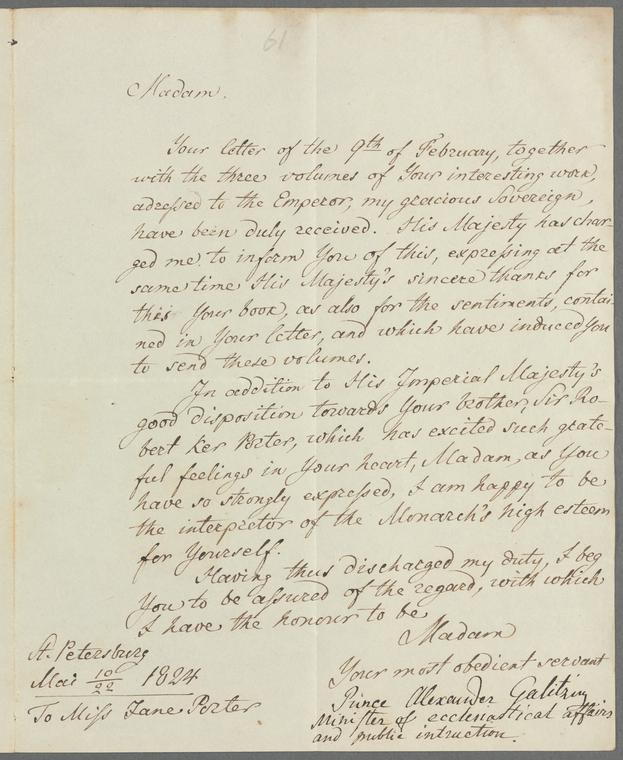 61
Madam.
Your letter of the 9th of February, together
with the three volumes of Your interesting work,
adressed to the Emperor, my gracious Sovereign,
have been duly received. His Majesty has char-
ged me to inform You of this, expressing at the
same time His Majesty's sincere thanks for
this Your book, as also for the sentiments, contai-
ned in Your letter, and which have induced You
to send these volumes.
In addition to His Imperial Majesty's
good disposition towards Your brother, Sir Ro-
bert Ker Porter, which has excited such grate-
ful feelings in Your heart, Madam, as You
have so strongly expressed, I am happy to be
the interpretor of the Monarch's high esteem
for Yourself.
Having thus discharged my duty, I beg
You to be assured of the regard, with which
I have the honour to be
Madam
Your most obedient servant
Prince Alexander Galitzin
Minister of ecclesiastical affairs
and public intruction.
St. Petersburg
Mai 10/22 1824
To Miss Jane Porter